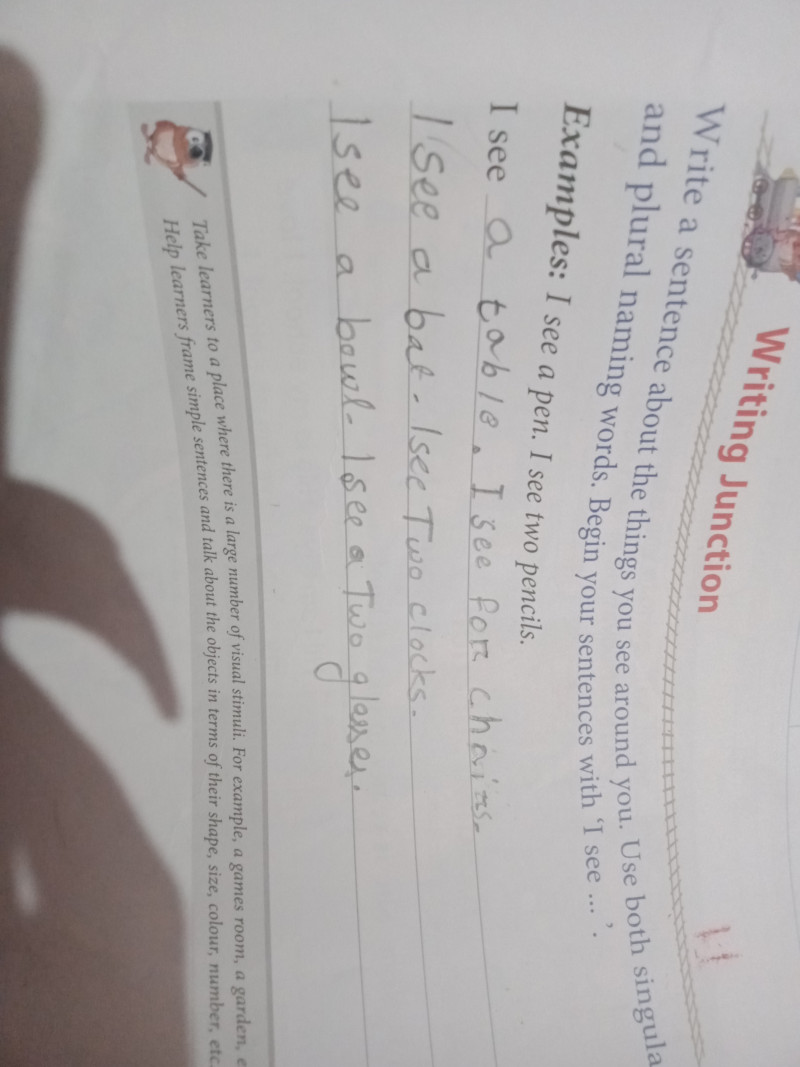 Writing Junction
Write a sentence about the things you see around you. Use both singula
and plural naming words. Begin your sentences with 'I see ... '.
Examples: I see a pen. I see two pencils.
I see a table. I see for chairs.
I see a bat. I see Two clocks.
I see a bowl. I see a Two glasses.
Take learners to a place where there is a large number of visual stimuli. For example, a games room, a garden, e
Help learners frame simple sentences and talk about the objects in terms of their shape, size, colour, number, etc.